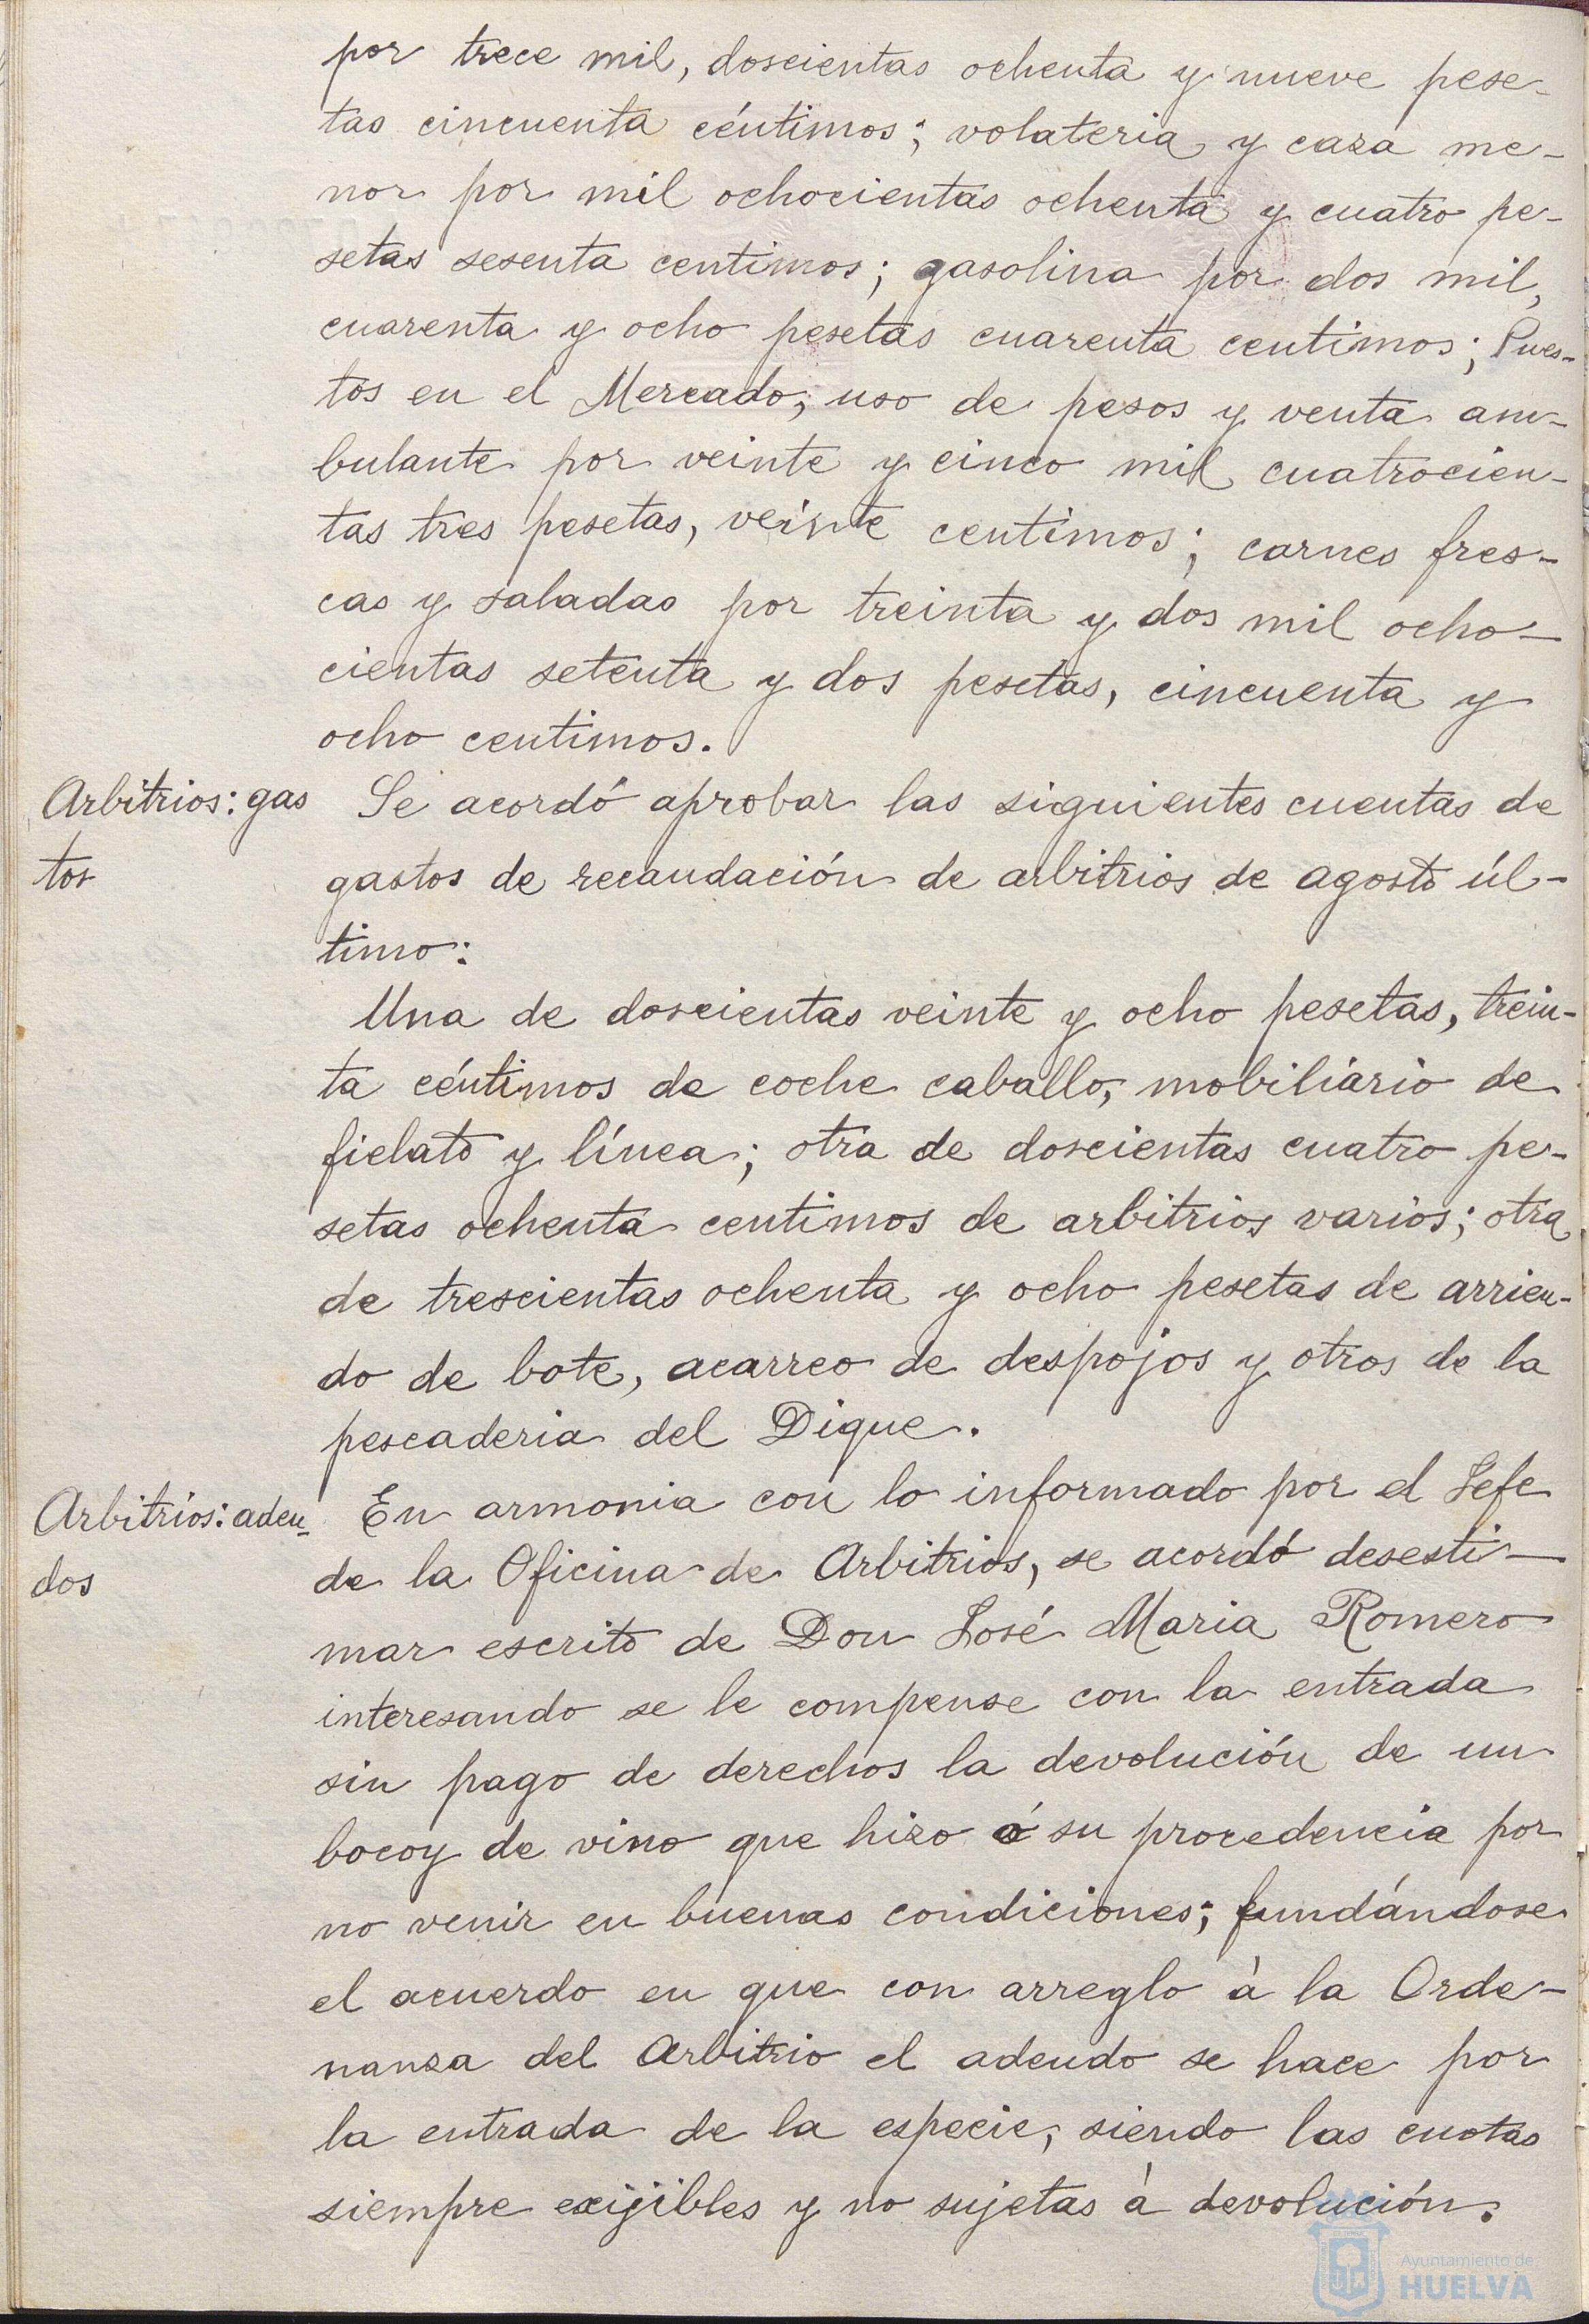 por trece mil, doscientas ochenta y nueve pese-
tas cincuenta céntimos; volateria y caza me-
nor por mil ochocientas ochenta y cuatro pe-
setas sesenta centimos; gasolina por dos mil,
cuarenta y ocho pesetas cuarenta centimos; Pues-
tos en el Mercado, uso de pesos y venta am-
bulante por veinte y cinco mil cuatrocien-
tas tres pesetas, veinte centimos; carnes fres-
cas y saladas por treinta y dos mil ocho-
cientas setenta y dos pesetas, cincuenta y
ocho centimos.
Arbitrios: gas
tos
Se acordó aprobar las siguientes cuentas de
gastos de recaudación de arbitrios de agosto úl-
timo:
Una de doscientas veinte y ocho pesetas, trein-
ta céntimos de coche caballo, mobiliario de
fielato y línea; otra de doscientas cuatro pe-
setas ochenta centimos de arbitrios varios; otra
de trescientas ochenta y ocho pesetas de arrien-
do de bote, acarreo de despojos y otros de la
pescaderia del Dique.
Arbitrios: adeu-
dos
En armonia con lo informado por el Jefe
de la Oficina de Arbitrios, se acordó desesti-
mar escrito de Don José Maria Romero
interesando se le compense con la entrada
sin pago de derechos la devolución de un
bocoy de vino que hizo á su procedencia por
no venir en buenas condiciones; fundándose
el acuerdo en que con arreglo à la Orde-
nanza del Arbitrio el adeudo se hace por
la entrada de la especie, siendo las cuotas
siempre exijibles y no sujetas à devolución.
Ayuntamiento de
HUELVA